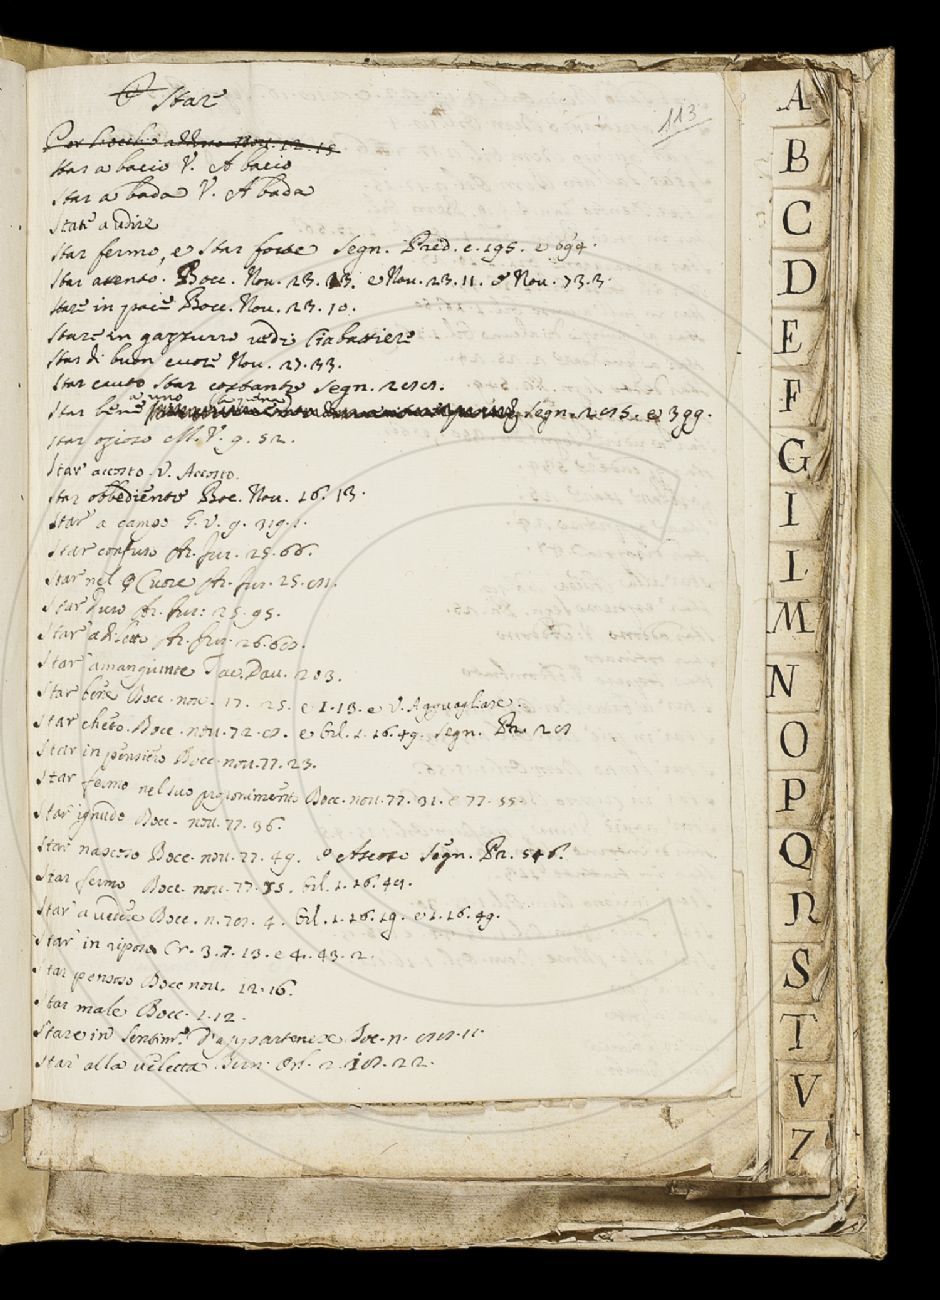 Star
113
Star a bacio V. A bacio
Star a bada V. A bada
Stare a udire
Star fermo, e Star forte Segn. Pred. c. 195. e 694.
Star atento. Bocc. Nov. 23. 13. e Nov. 23. 11. e Nov. 73. 3.
Stare in pace Bocc. Nov. 23. 10.
Stare in gazzurro vedi
Star di buon cuore Nov. 27. 33.
Star cauto Star costante Segn.
Star bene a uno Segn. e 399.
Star ozioso M. V. 9. 52.
Star accosto. V. Accosto.
Star obbediente Boc. Nov. 16. 13.
Star a campo G. V. 9. 319. 1.
Star confuso Ar. fur. 25. 66.
Star nel Cuore Ar. fur. 25.
Star duro Ar. fur: 25. 95.
Star a diletto Ar. fur. 26.
Star amanginte Tac. Dav. 203.
Star bene Bocc. nov. 17. 25. e 1. 13. e V. Agguagliare.
Star cheto. Bocc. nov. 72. e 1. 16. 49. Segn. Pr.
Star in pensiero Bocc. nov. 77. 23.
Star fermo nel suo proponimento Bocc. nov. 77. 31. e 77. 35
Star ignudo Bocc. nov. 77. 36.
Star nascoso Bocc. nov. 77. 49. o Ascoso Segn. Pr. 546.
Star fermo Bocc. nov. 77. 35. 1. 16.
Star a vedere Bocc. n. 4. 1. 16. 19. e 1. 16. 49.
Star in riposo Cr. 3. 7. 13. e 4. 43. 2.
Star pensoso Bocc nov. 12. 16.
Star male Bocc. 1. 12.
Stare in sentim.º d'appartenere
Star alla veletta. Orl. 2. 22.
A
B
C
D
E
F
G
I
L
M
N
O
P
Q
R
S
T
V
Z